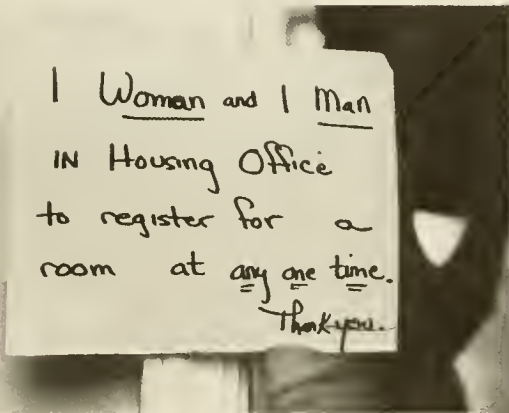 1 Woman and 1 Man
IN Housing Office
to register for a
room at any one time.
Thank you.